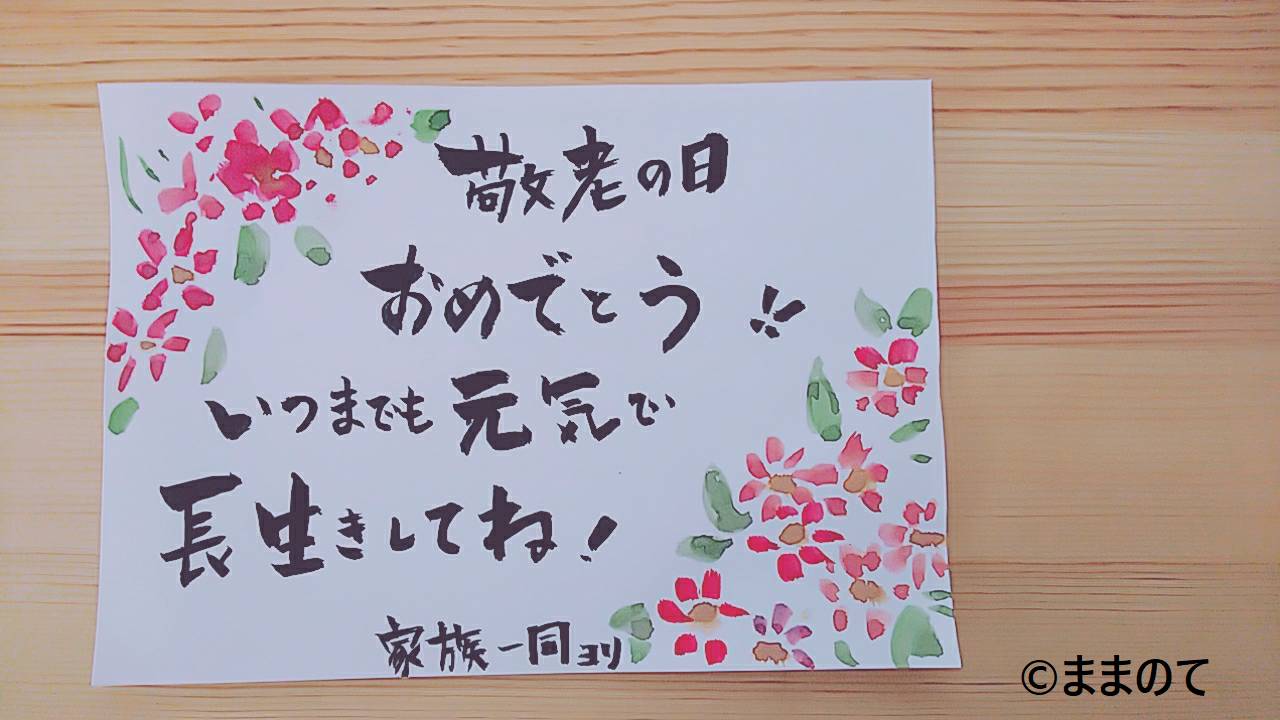 敬老の日
おめでとう!!
いつまでも元気で
長生きしてね!
家族一同ヨリ
©ままのて